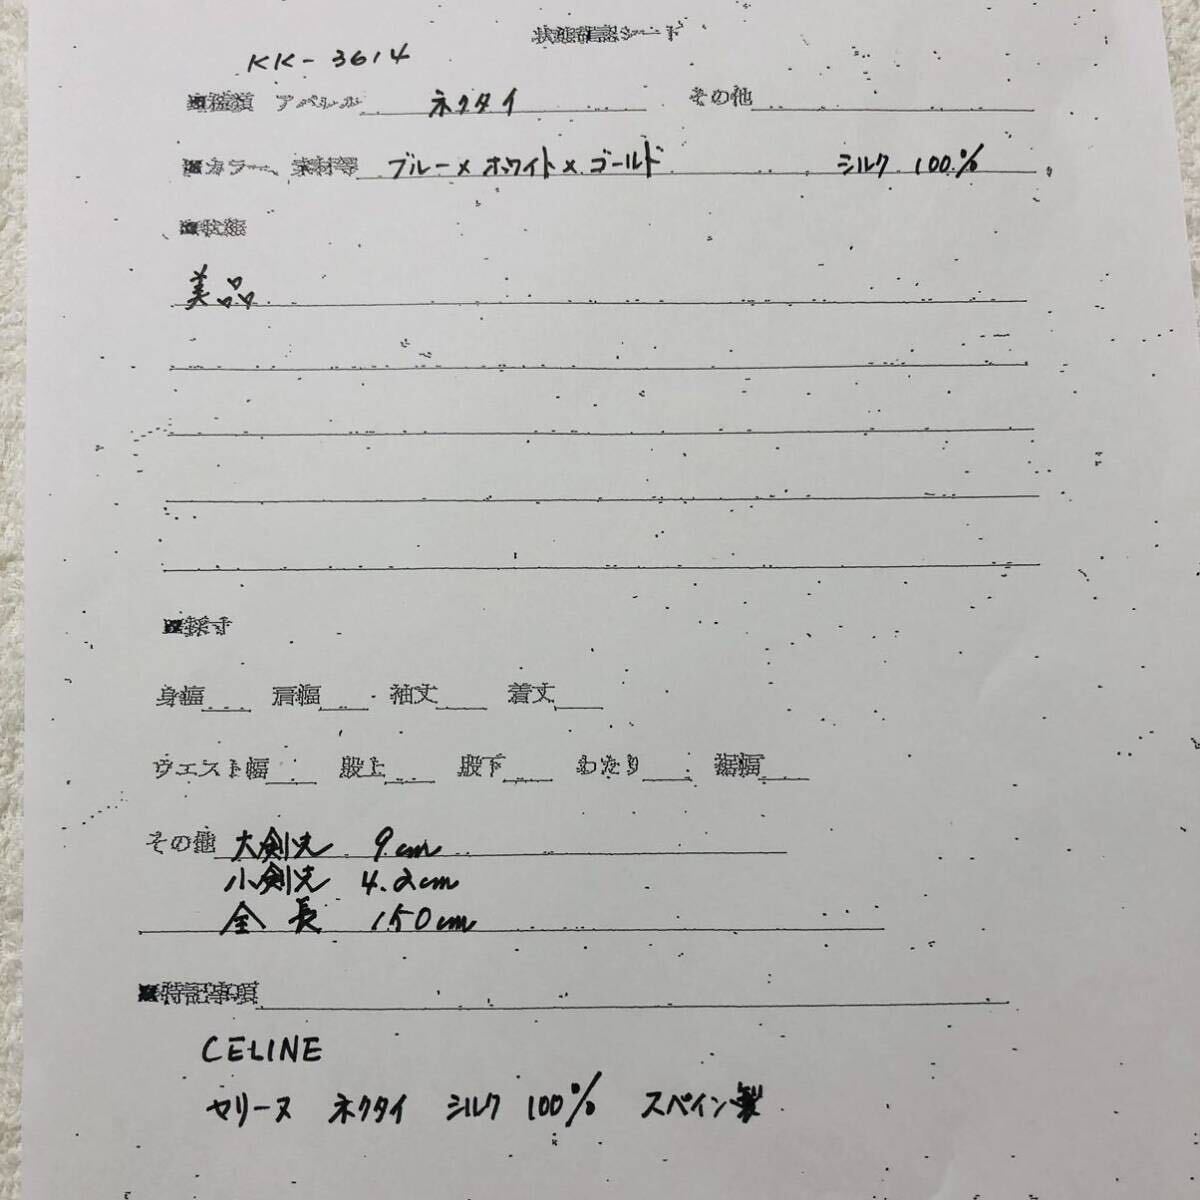 状態確認シート
KK-3614
■種類 アパレル ネクタイ その他
■カラー、素材等 ブルー×ホワイト×ゴールド シルク 100%
■状態
美品
■採寸
身幅 肩幅 袖丈 着丈
ウエスト幅 股上 股下 わたり 裾幅
その他 大剣先 9cm
小剣先 4.2cm
全長 150cm
■特記事項
CELINE
セリーヌ ネクタイ シルク 100% スペイン製